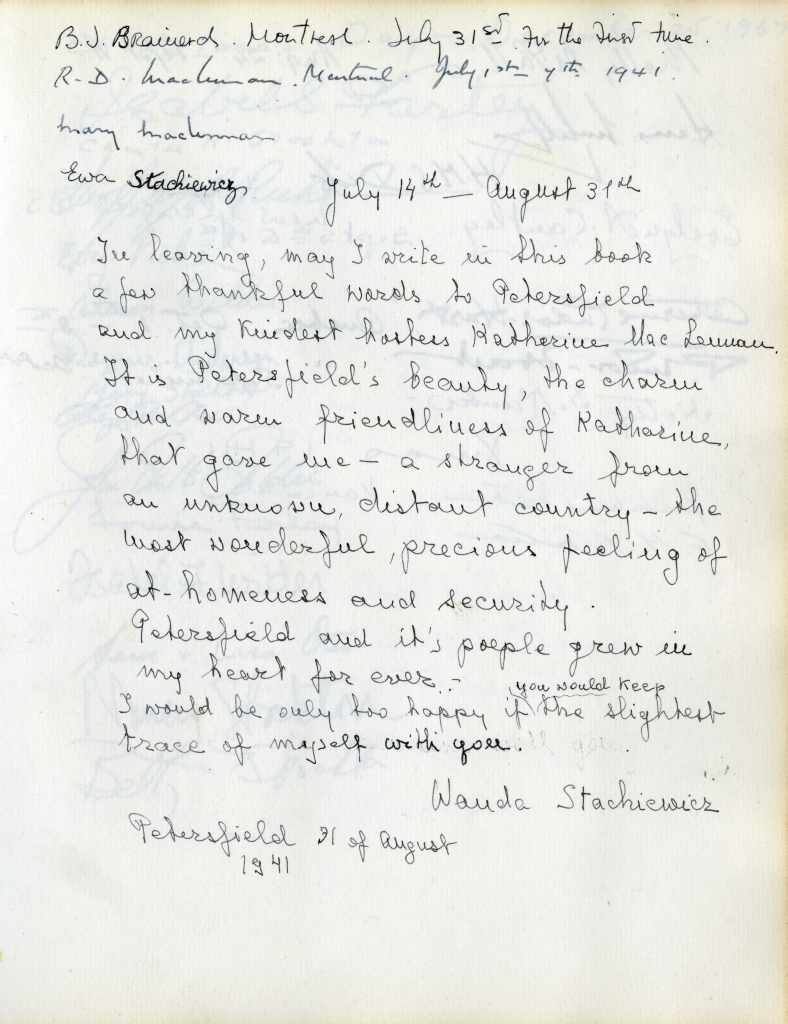 B. J. Brainerd. Montreal. July 31st. For the first time.
R. D. MacLennan. Montreal. July 1st – 7th 1941.
Mary MacLennan
Ewa Stachiewicz. July 14th — August 31th
In leaving, may I write in this book
a few thankful words to Petersfield
and my kindest hostess, Katherine Mac Lennan.
It is Petersfield's beauty, the charm
and warm friendliness of Katharine,
that gave me – a stranger from
an unknown, distant country – the
most wonderful, precious feeling of
at-homeness and security.
Petersfield and it's poeple grew in
my heart for ever. –
you would keep
I would be only too happy if the slightest
trace of myself with you.
Wanda Stachiewicz
Petersfield 31 of August
1941